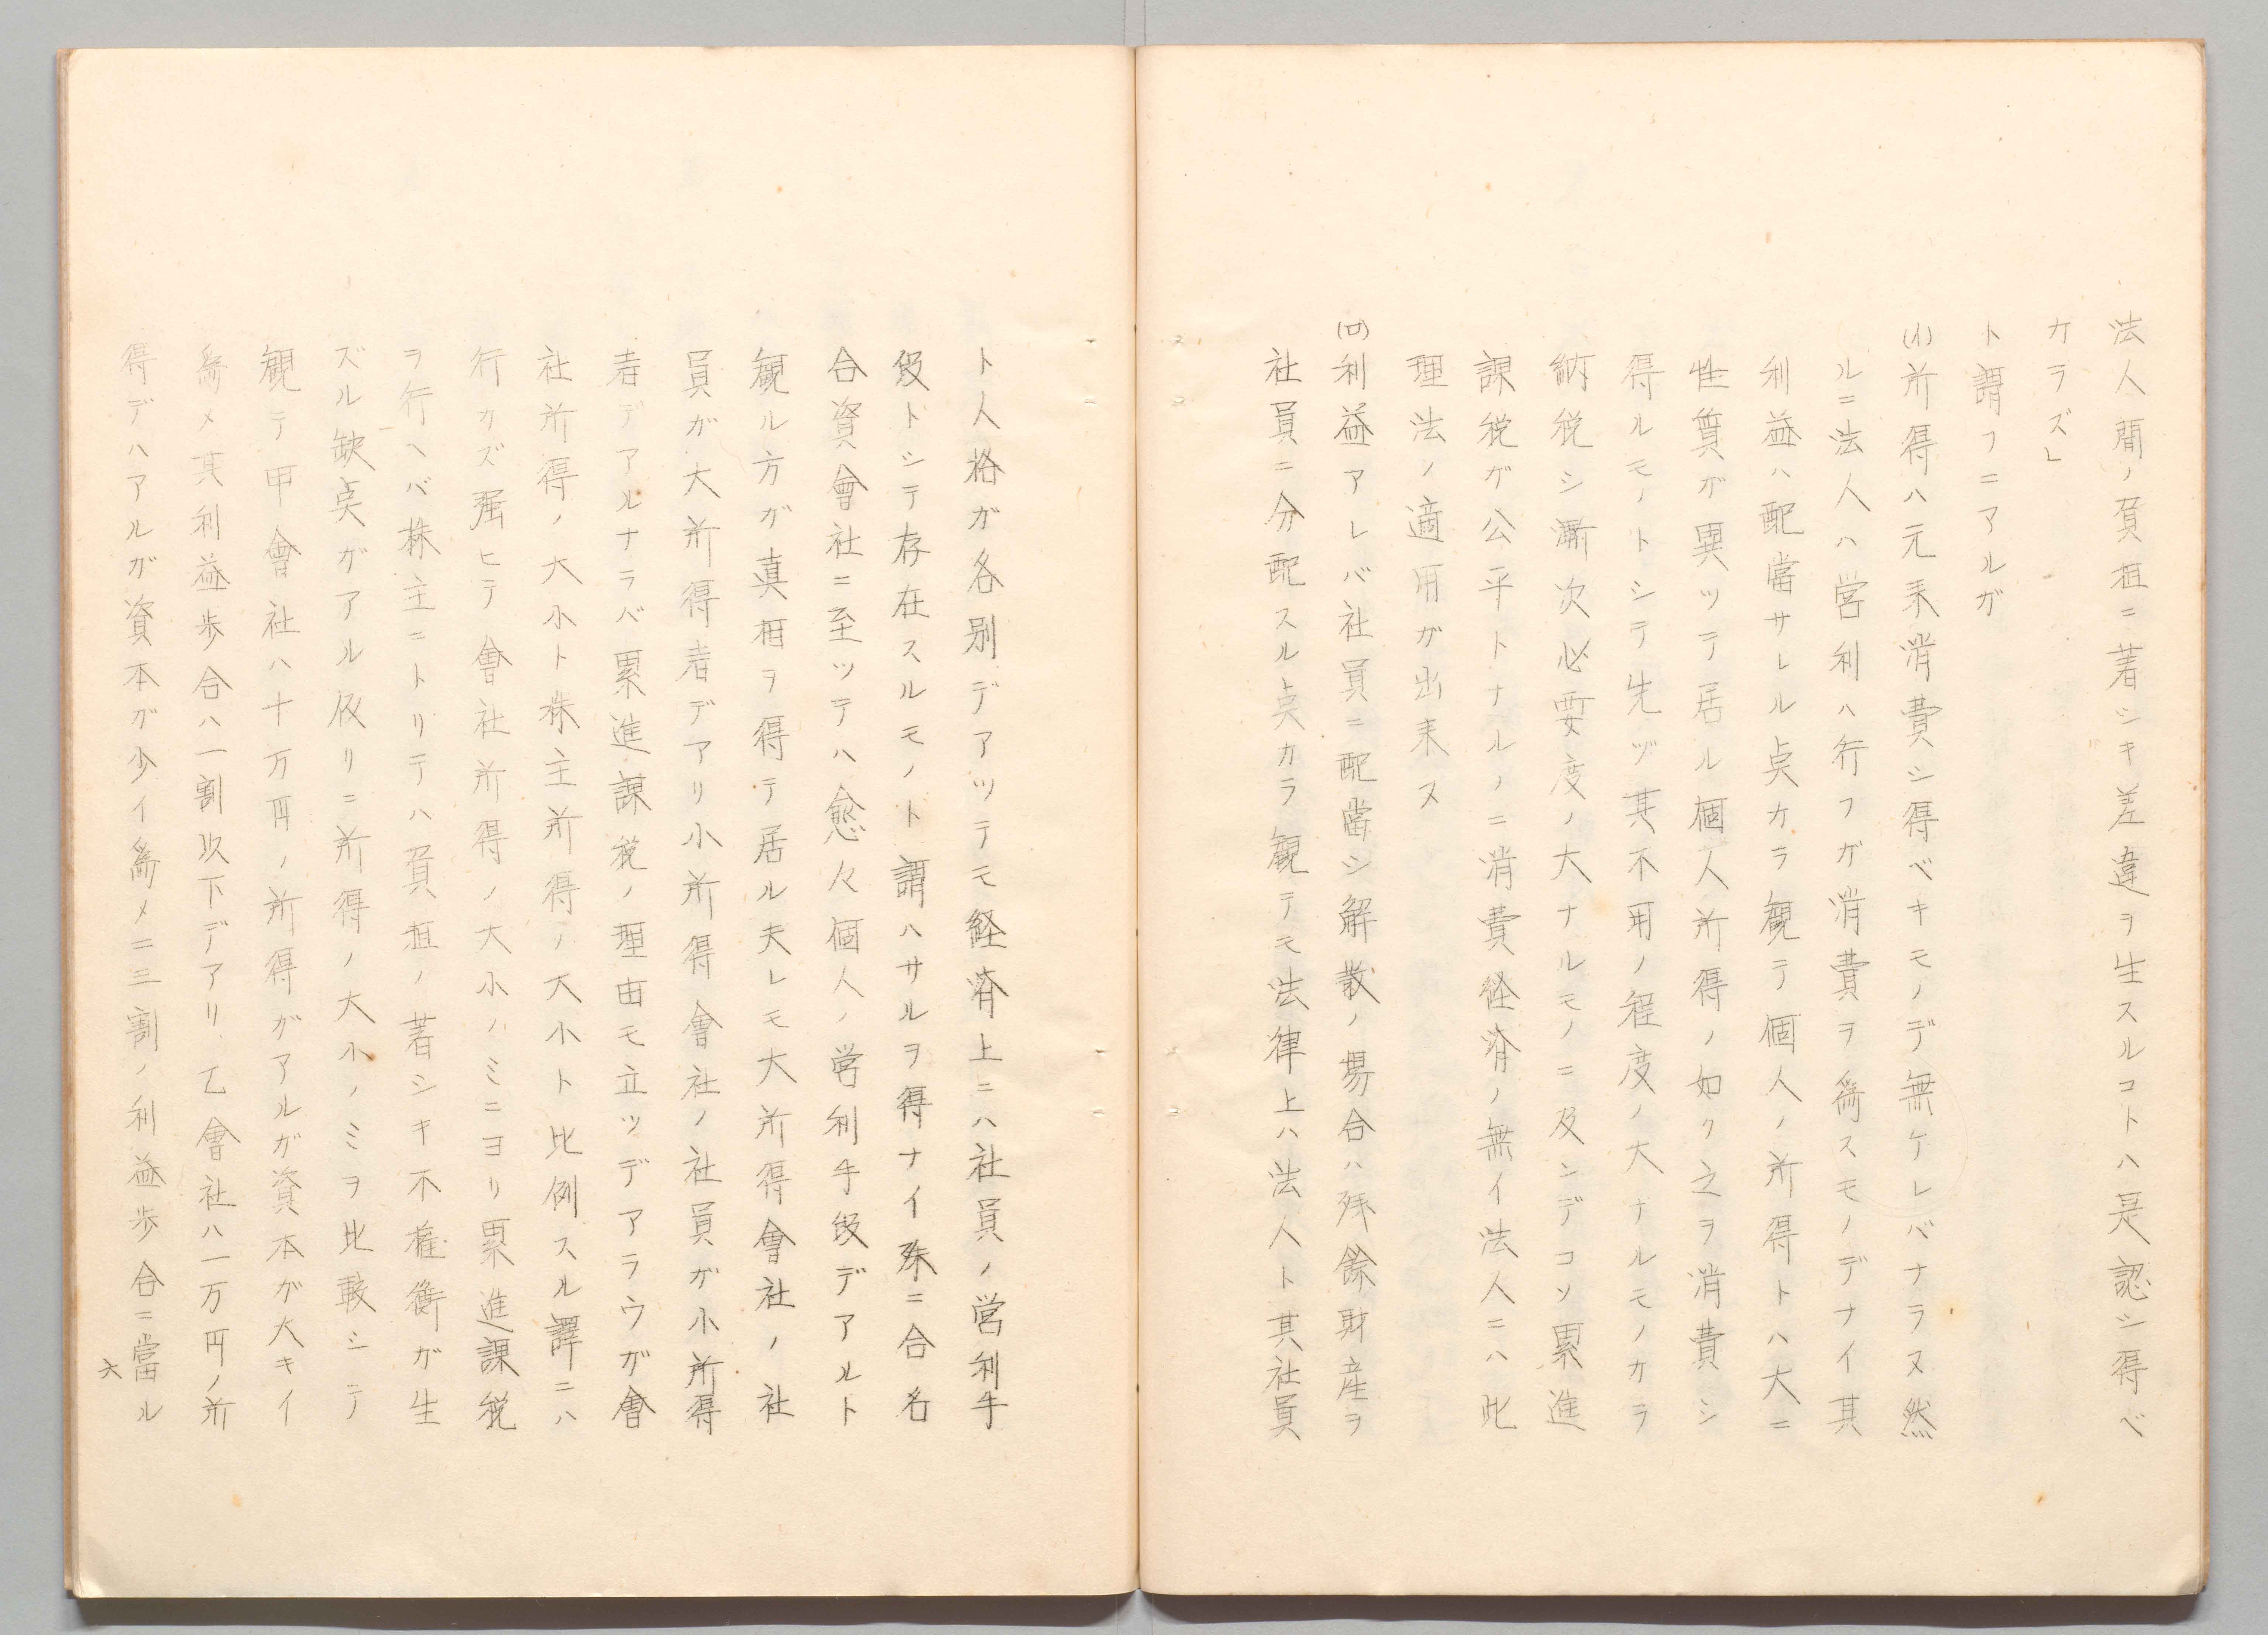 法人間ノ負担ニ著シキ差違ヲ生スルコトハ是認シ得ベ
カラズ」
ト謂フニアルガ
(イ)所得ハ元来消費シ得ベキモノデ無ケレバナラヌ然
ルニ法人ハ営利ハ行フガ消費ヲ為スモノデナイ其
利益ハ配當サレル点カラ観テ個人ノ所得トハ大ニ
性質ガ異ツテ居ル個人所得ノ如ク之ヲ消費シ
得ルモノトシテ先ヅ其不用ノ程度ノ大ナルモノカラ
納税シ漸次必要度ノ大ナルモノニ及ンデコソ累進
課税ガ公平トナルノニ消費経済ノ無イ法人ニハ此
理法ノ適用ガ出来ヌ
(ロ)利益アレバ社員ニ配當シ解散ノ場合ハ残餘財産ヲ
社員ニ分配スル点カラ観テモ法律上ハ法人ト其社員
ト人格ガ各別デアツテモ経済上ニハ社員ノ営利手
段トシテ存在スルモノト謂ハサルヲ得ナイ殊ニ合名
合資會社ニ至ツテハ愈々個人ノ営利手段デアルト
観ル方ガ真相ヲ得テ居ル夫レモ大所得會社ノ社
員ガ大所得者デアリ小所得會社ノ社員ガ小所得
者デアルナラバ累進課税ノ理由モ立ツデアラウガ會
社所得ノ大小ト株主所得ノ大小ト比例スル譯ニハ
行カズ強ヒテ會社所得ノ大小ノミニヨリ累進課税
ヲ行ヘバ株主ニトリテハ負担ノ著シキ不権衡ガ生
ズル缺点ガアル仮リニ所得ノ大小ノミヲ比較シテ
観テ甲會社ハ十万円ノ所得ガアルガ資本ガ大キイ
為メ其利益歩合ハ一割以下デアリ乙會社ハ一万円ノ所
得デハアルガ資本ガ少イ為メニ三割ノ利益歩合ニ當ル
六